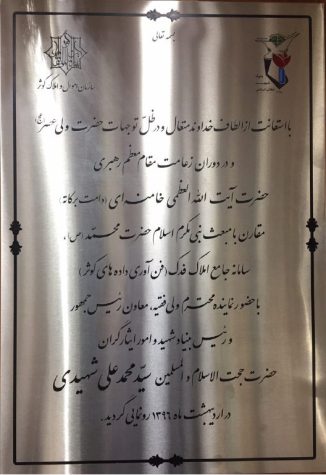 بسمه تعالی
سازمان اموال و املاک کوثر
با استعانت از الطاف خداوند متعال و در ظل توجهات حضرت ولی عصر (عج)
و در دوران زعامت مقام معظم رهبری
حضرت آیت الله العظمی خامنه ای (دامت برکاته)
مقارن با مبعث نبی مکرم اسلام حضرت محمد (ص)،
سامانه جامع املاک فدک (فن آوری داده های کوثر)
با حضور نماینده محترم ولی فقیه، معاون رئیس جمهور
و رئیس بنیاد شهید و امور ایثارگران
حضرت حجت الاسلام و المسلمین سید محمد علی شهیدی
در اردیبهشت ماه ۱۳۹۶ رونمایی گردید.